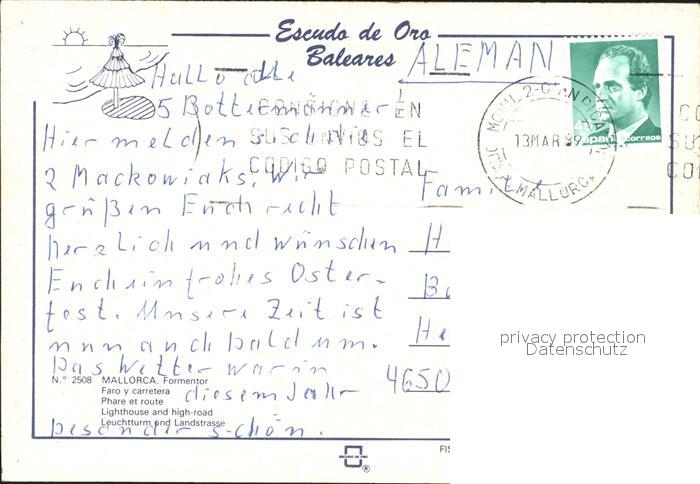 Escudo de Oro
Baleares
ALEMAN
Hallo alle
5 Bottermänner!
CONSIGNE EN
SUS ENVIOS EL
CODIGO POSTAL
13 MAR 89
MALLORCA
España correos
Hier melden sich die
2 Mackowiaks. Wir
grüßen Euch recht
herzlich und wünschen
Euch ein frohes Oster-
fest. Unsere Zeit ist
nun auch bald um.
Das Wetter war in
diesem Jahr
besonder schön.
Famil
H
Bo
He
4650
N.° 2508 MALLORCA. Formentor
Faro y carretera
Phare et route
Lighthouse and high-road
Leuchtturm und Landstrasse
FIS
privacy protection
Datenschutz